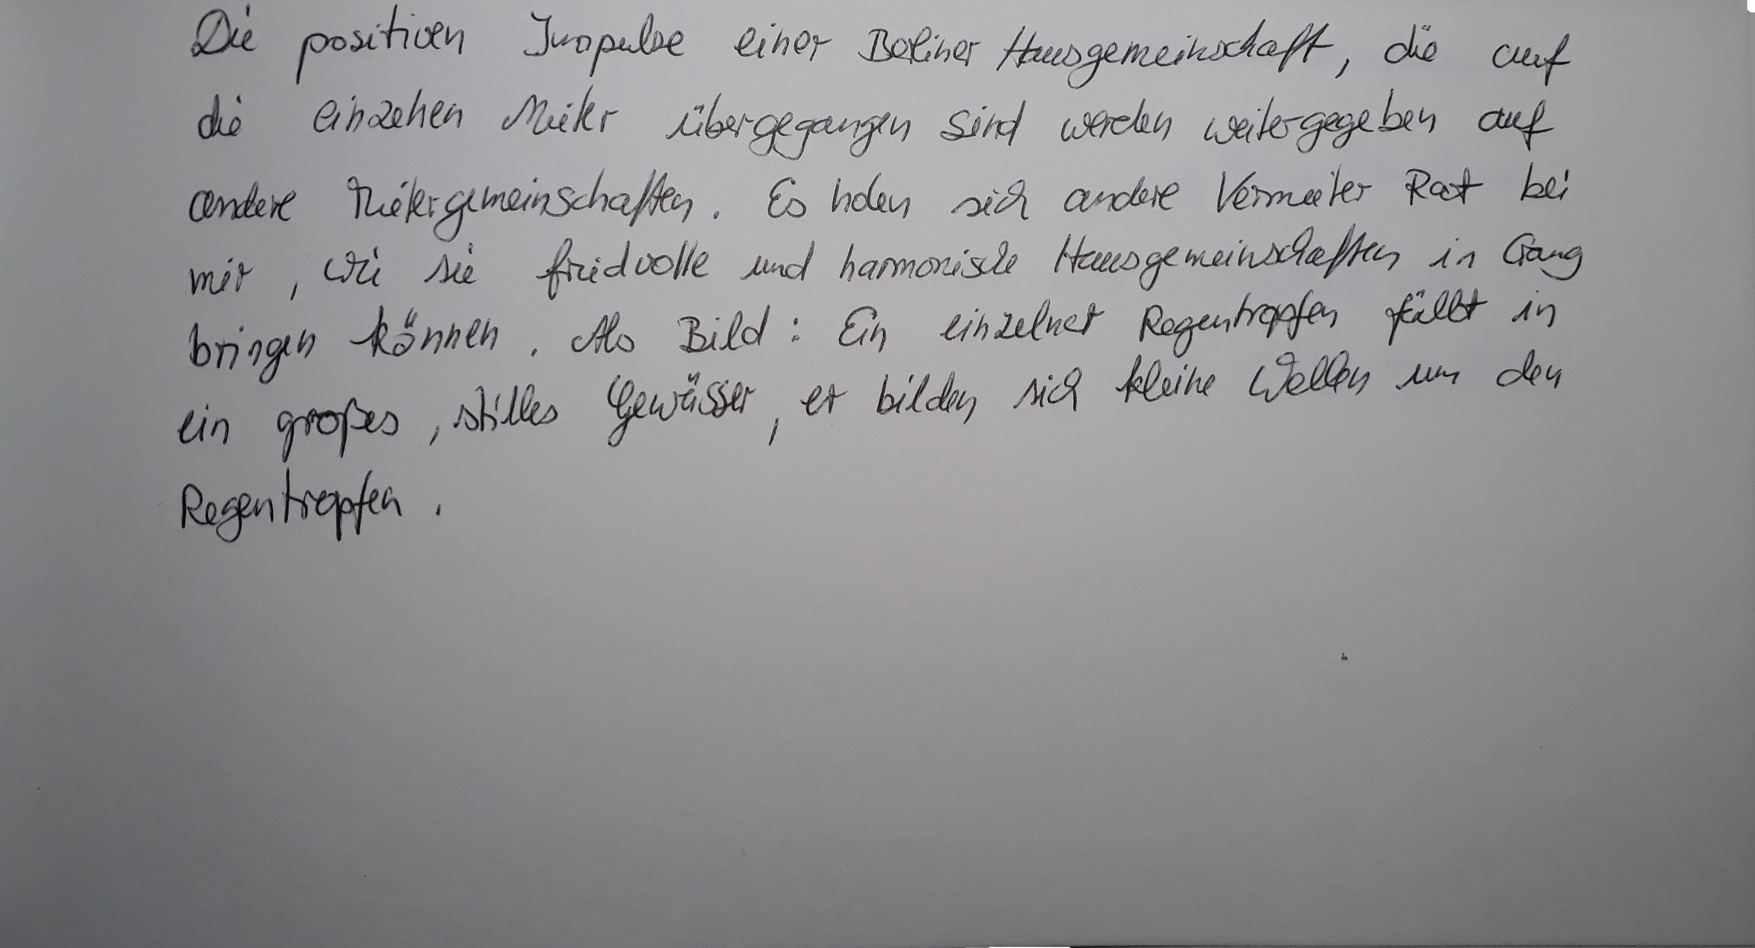 Die positiven Impulse einer Berliner Hausgemeinschaft, die auf
die einzelnen Mieter übergegangen sind werden weitergegeben auf
andere Mietergemeinschaften. Es holen sich andere Vermieter Rat bei
mir, wie sie friedvolle und harmonische Hausgemeinschaften in Gang
bringen können. Als Bild: Ein einzelner Regentropfen fällt in
ein großes, stilles Gewässer, er bilden sich kleine Wellen um den
Regentropfen.